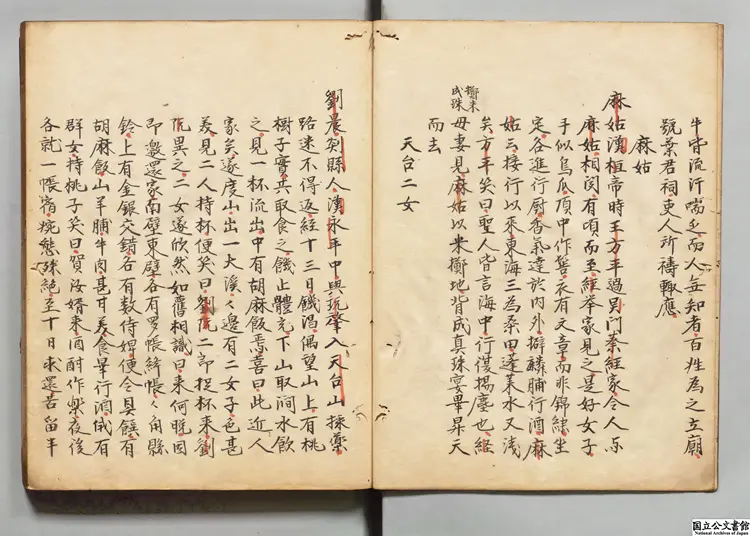 牛帝流汗喘乏而人無知者百姓為之立廟
號葉君祠吏人所禱輒應
麻姑
麻姑漢桓帝時王方平過吴門蔡經家令人与
麻姑相聞有頃而至經挙家見之是好女子
手似鳥爪頂中作髻衣有文章而非錦綉坐
定各進行厨香氣達於内外擗麟脯行酒麻
姑云接行以來東海三為桑田蓬莱水又浅
矣方平笑曰聖人皆言海中行復揚塵也経
母妻見麻姑以米擲地皆成真珠宴畢昇天
擲米
成珠
而去
天台二女
劉晨剡縣人漢永年中與阮肇入天台山採藥
路迷不得返経十三日饑渇偶望山上有桃
樹子實共取食之饑止體充下山取澗水飲
之見一杯流出中有胡麻飯焉喜曰此近人
家矣遂度山出一大溪々邊有二女子色甚
美見二人持杯便笑曰劉阮二郎捉杯来劉
阮異之二女遂欣然如舊相識曰来何晩因
即邀還家南壁東壁各有羅帳絳帳々角縣
鈴上有金銀交錯各有数侍婢便令具饌有
胡麻飯山羊脯牛肉甚甘美食畢行酒俄有
群女持桃子笑曰賀汝婿来酒酣作樂夜後
各就一帳宿婉態殊絶至十日求還苦留半
国立公文書館
National Archives of Japan